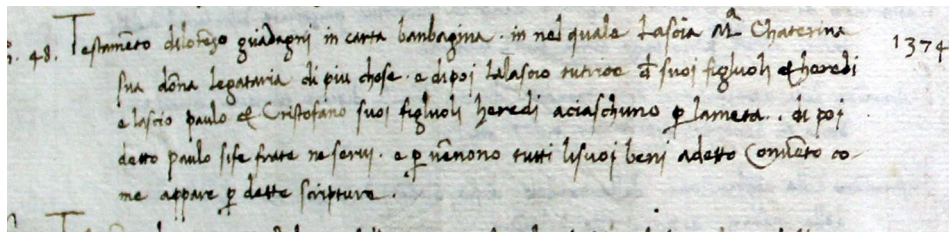 48. Testamẽto dilorẽzo guadagni in carta banbagina . in nel quale Lascia Mᵃ Chaterina 1374
sua dõna legataria di piu chose . e dipoj lalascio tutrice d̄ suoi figluoli & heredi
e lascio paulo & Cristofano suoi figluoli heredi aciaschuno ꝑ lameta . di poj
detto paulo sife frate ne servi . e ꝑ vẽnono tutti lisuoj beni adetto Convẽto co-
me appare ꝑ dette scripture .